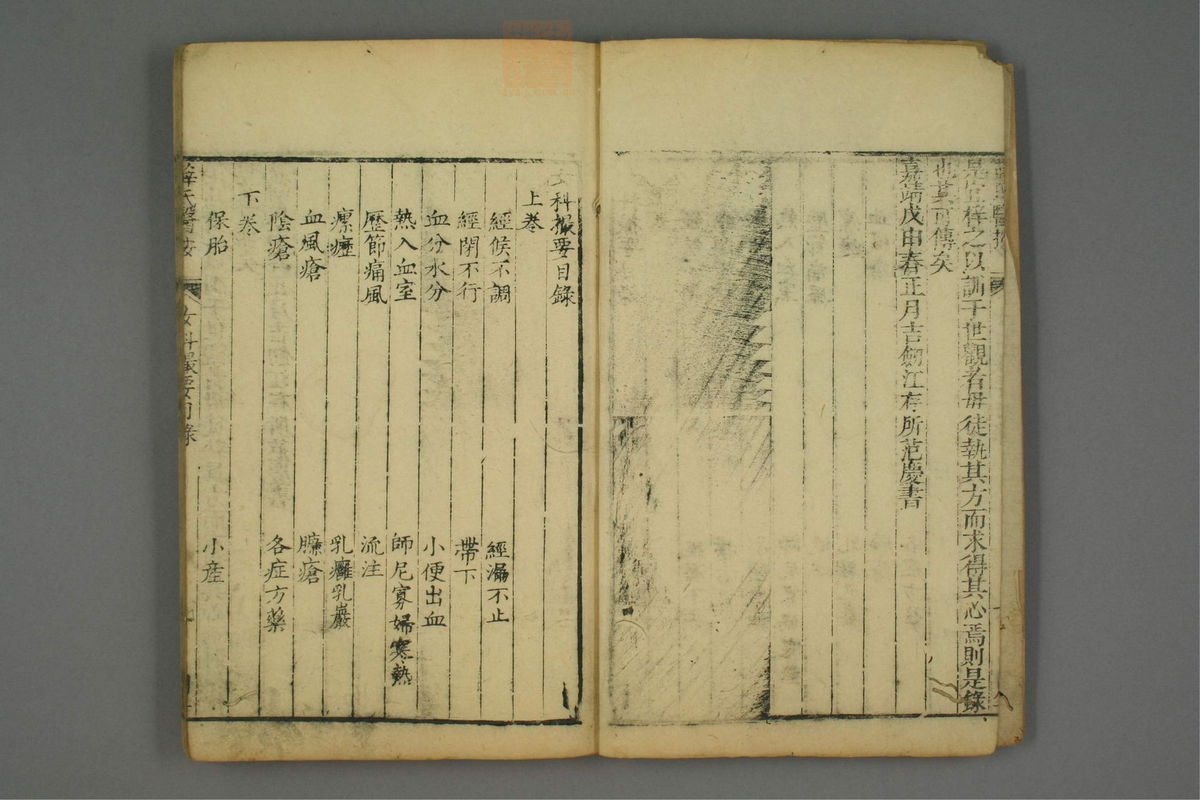 是宜梓之以訓于世觀者毋徒執其方而求得其心焉則是錄
也其可傳矣
嘉靖戊申春正月吉劒江存所范慶書
科撮要目錄
上卷
經候不調 經漏不止
經閉不行 帶下
血分水分 小便出血
熱入血室 師尼寡婦寒熱
歷節痛風 流注
瘰癧 乳癰乳巖
血風瘡 臁瘡
陰瘡 各症方藥
下卷
保胎 小產
薛氏醫按 女科撮要目錄